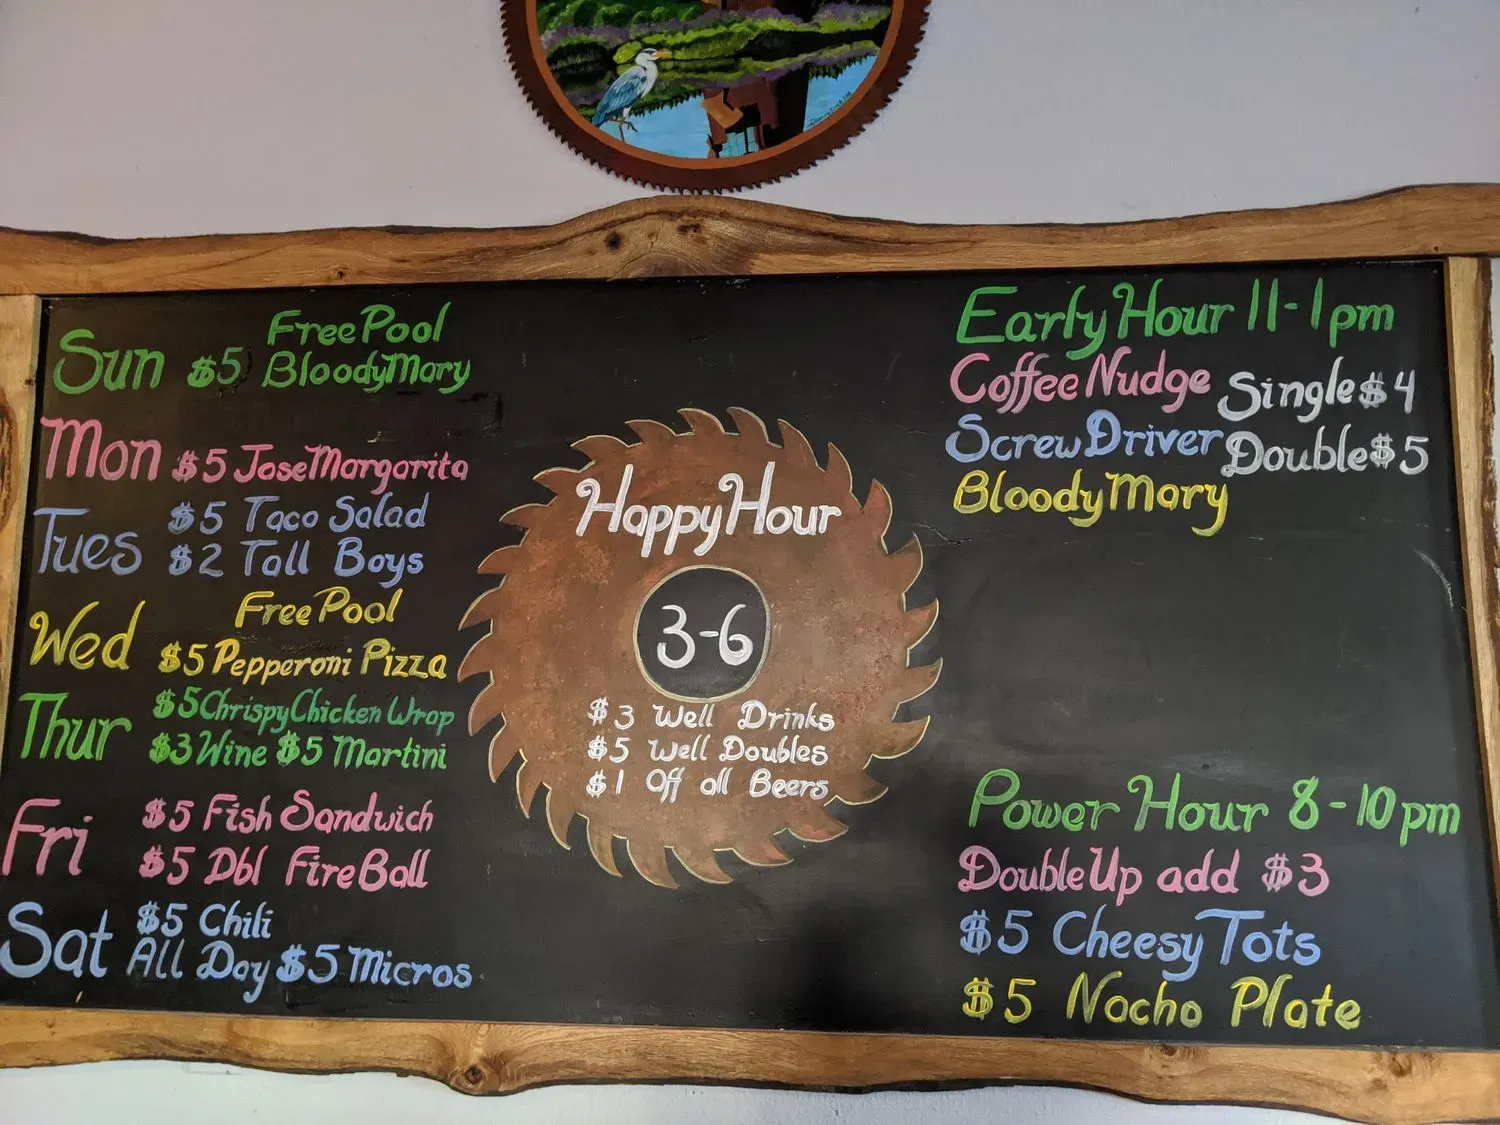 Sun
Free Pool
$5 Bloody Mary
Mon $5 Jose Margarita
Tues
$5 Taco Salad
$2 Tall Boys
Wed
Free Pool
$5 Pepperoni Pizza
Thur
$5 Chrispy Chicken Wrap
$3 Wine $5 Martini
Fri
$5 Fish Sandwich
$5 Dbl FireBall
Sat
$5 Chili
All Day $5 Micros
Happy Hour
3-6
$3 Well Drinks
$5 Well Doubles
$1 Off all Beers
Early Hour 11-1pm
Coffee Nudge
Screw Driver
Bloody Mary
Single $4
Double $5
Power Hour 8-10pm
Double Up add $3
$5 Cheesy Tots
$5 Nacho Plate